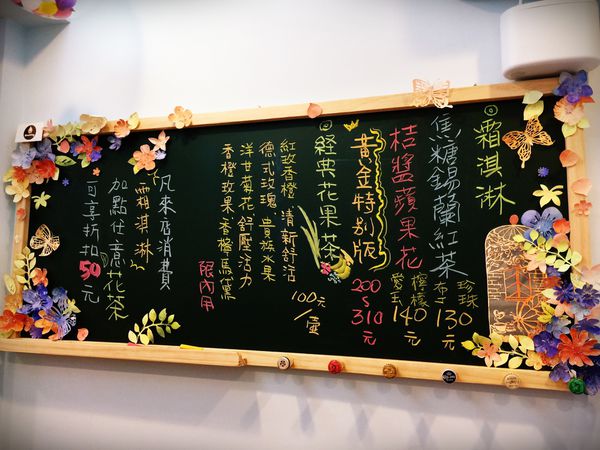 霜淇淋
焦糖錫蘭紅茶
珍珠
布丁 130元
桔醬蘋果花
檸檬
愛玉 140元
黃金特別版
200~310元
經典花果茶
紅玫香橙 清新舒活
德式玫瑰 貴族水果
洋甘菊花 舒壓活力
香橙玫果 香檸馬黛
100元/壺
限內用
凡來店消費
霜淇淋
加點任意花茶
可享折扣50元